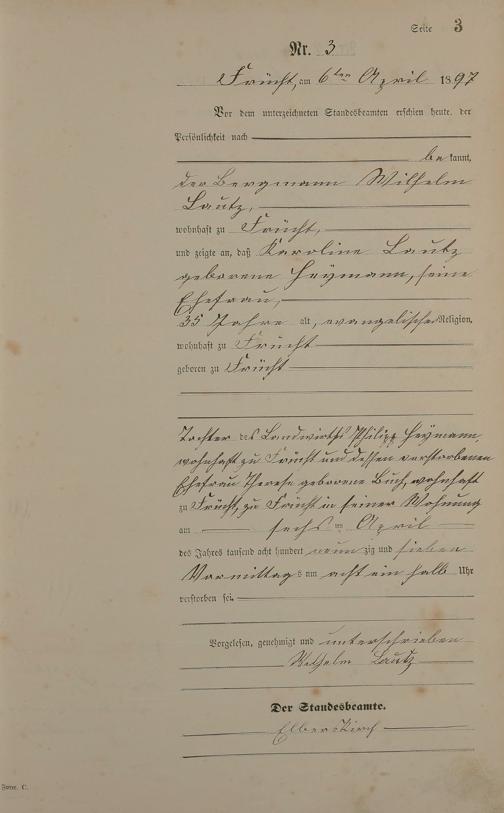 Seite 3
Nr. 3
Frücht, am 6ten April 1897
Vor dem unterzeichneten Standesbeamten erschien heute, der
Persönlichkeit nach
be kannt,
der Bergmann Wilhelm
Lautz,
wohnhaft zu Frücht,
und zeigte an, daß Karoline Lautz
geborene Heymann, seine
Ehefrau,
35 Jahre alt, evangelischer Religion,
wohnhaft zu Frücht
geboren zu Frücht
Tochter des Landwirths Philipp Heymann,
wohnhaft zu Frücht und dessen verstorbenen
Ehefrau Therese geborene Buch, wohnhaft
zu Frücht, zu Frücht in seiner Wohnung
am sechsten April
des Jahres tausend acht hundert neun zig und sieben
Vormittags um acht ein halb Uhr
verstorben sei.
Vorgelesen, genehmigt und unterschrieben
Wilhelm Lautz
Der Standesbeamte.
Elberskirch
Form. C.